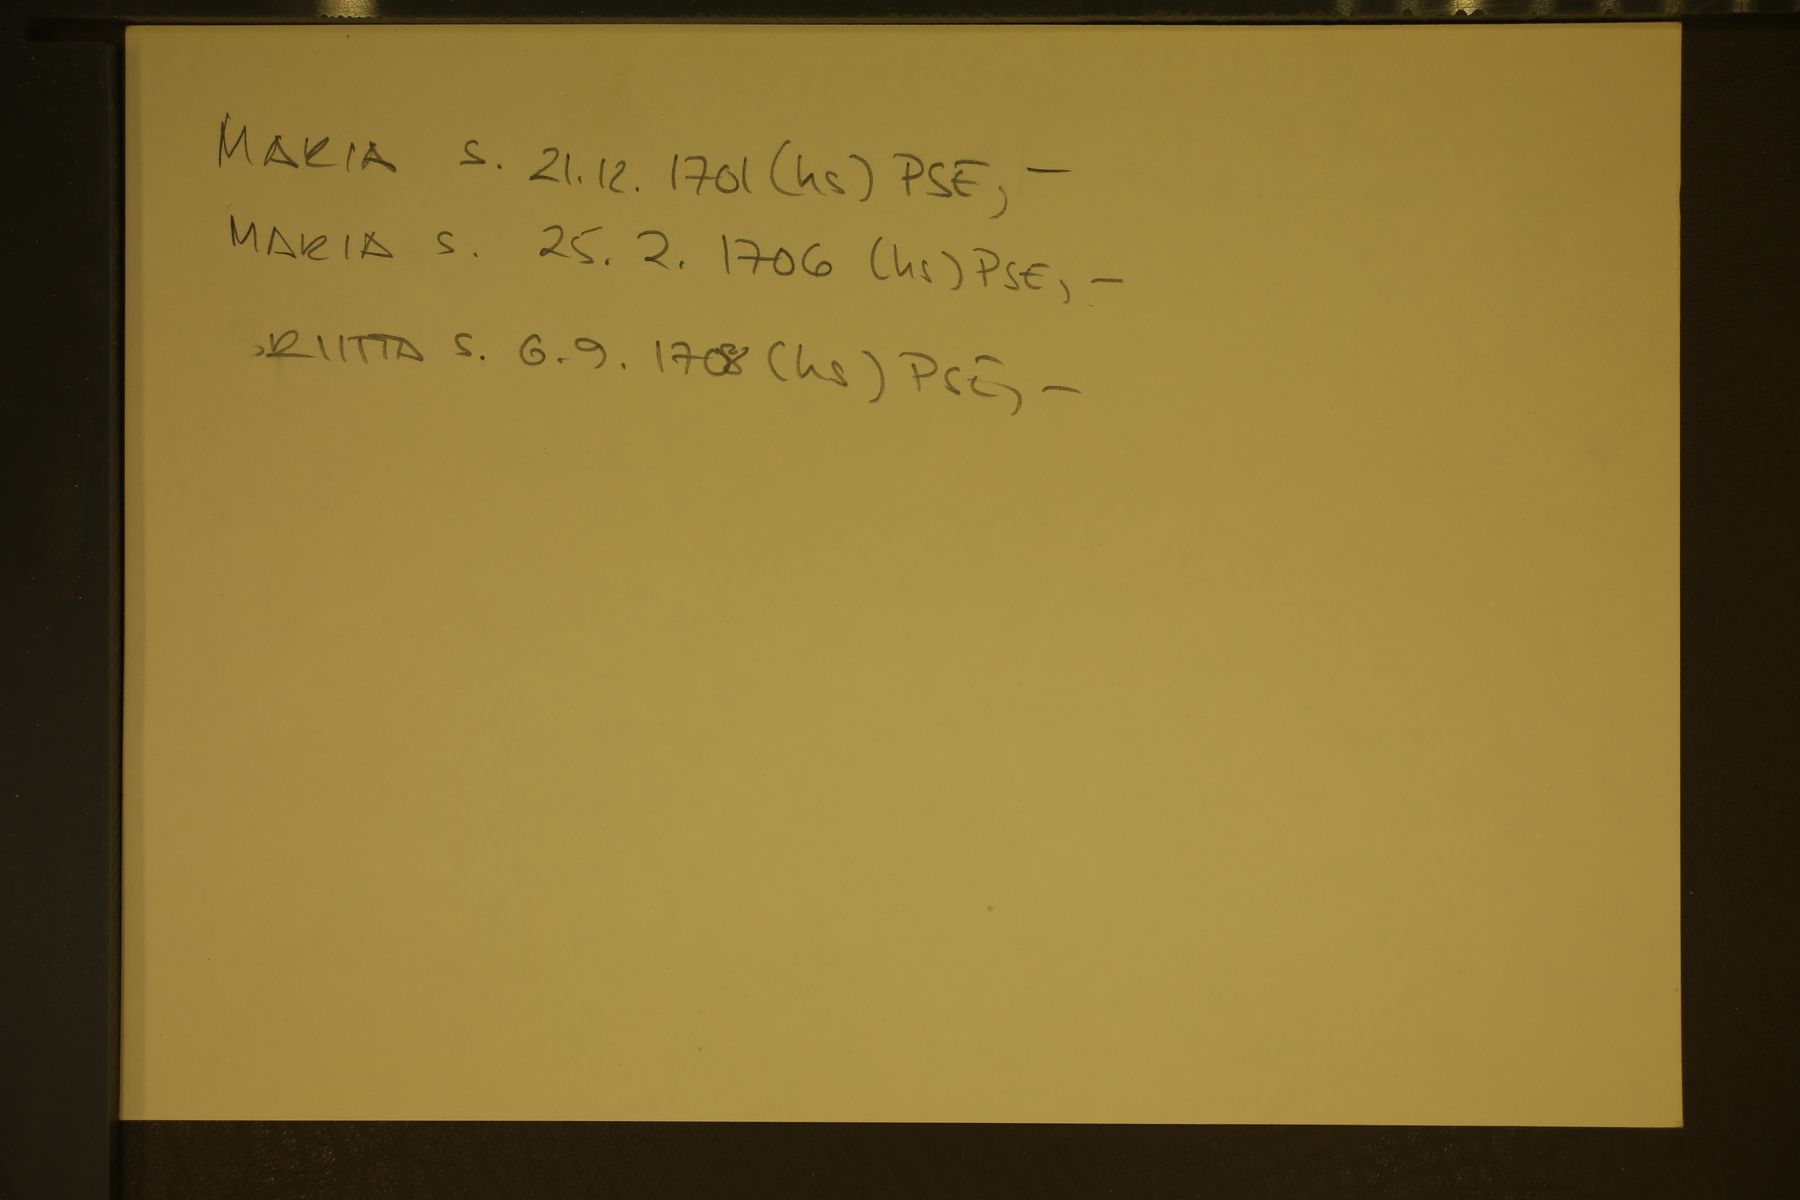 MARIA s. 21.12. 1701 (hs) PSE, –
MARIA s. 25. 2. 1706 (hs) PSE, –
RIITTA s. 6.9. 1708 (hs) PSE, –